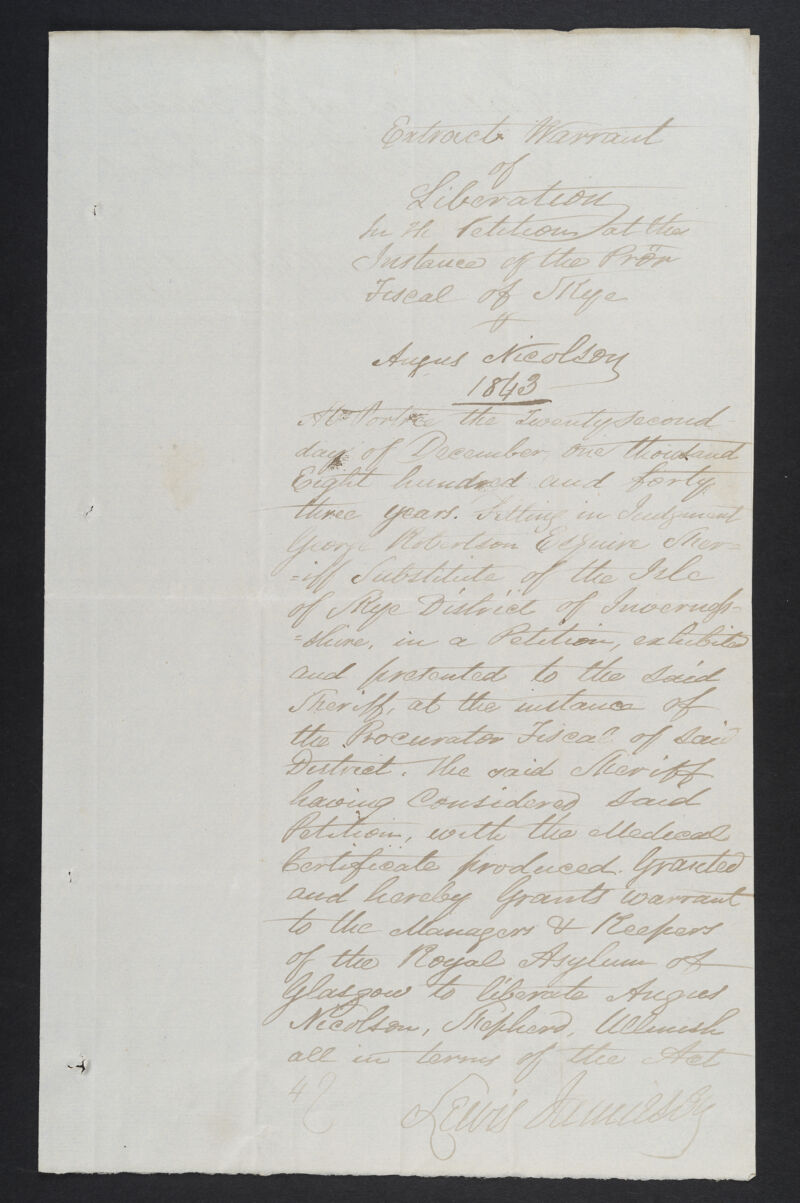 Extract Warrant
of
Liberation
In the Petition at the
Instance of the Pror
Fiscal of Skye
&
Angus Nicolson
1843
At Portree the Twenty second
day of December, one thousand
Eight hundred and forty
three years. Sitting in Judgment
George Robertson Esquire Sher=
=iff Substitute of the Isle
of Skye District of Inverness=
=shire, in a Petition, exhibited
and presented to the said
Sheriff, at the instance of
the Procurator Fiscal of said
District. The said Sheriff
having Considered said
Petition, with the Medical
Certificate produced. Granted
and hereby Grants warrant
to the Managers & Keepers
of the Royal Asylum of
Glasgow to liberate Angus
Nicolson, Shepherd, Ullinish
all in terms of the Act
Lewis Jamieson